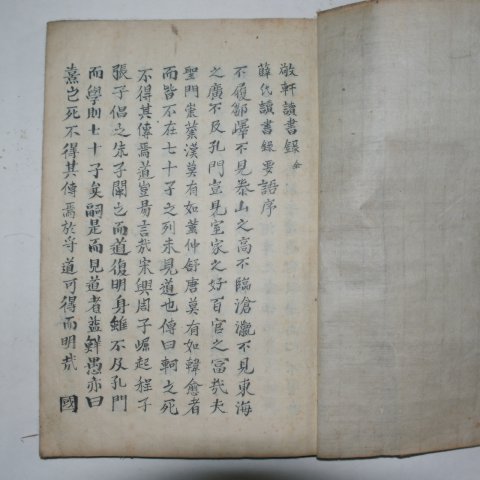 敬軒讀書錄 全
薛氏讀書錄要語序
不履鄒嶧不見泰山之高不臨滄瀛不見東海
之廣不及孔門豈見室家之好百官之冨哉夫
聖門崇業漢莫有如董仲舒唐莫有如韓愈者
而皆不在七十子之列未見道也傳曰軻之死
不得其傳焉道豈易言哉宋興周子崛起程子
張子侶之朱子闡之而道復明身雖不及孔門
而學則七十子矣嗣是而見道者益鮮愚亦曰
熹之死不得其傳焉於乎道可得而明哉 國